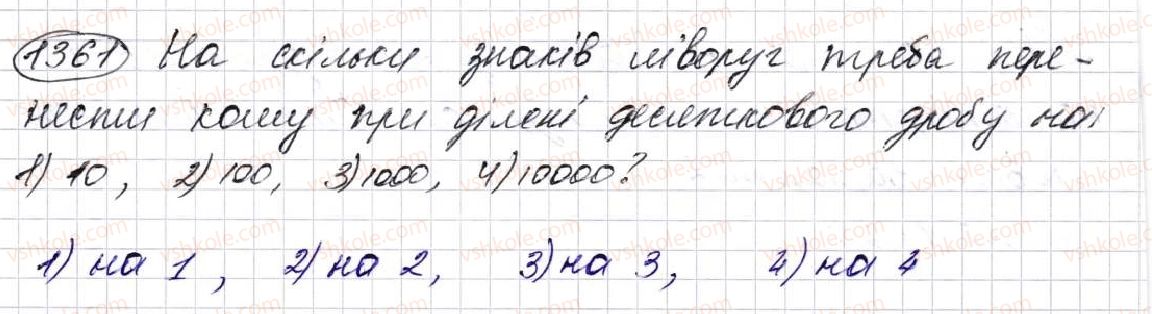 1361 На скільки знаків ліворуч треба пере-
нести кому при ділені десяткового дробу на:
1) 10, 2) 100, 3) 1000, 4) 10000?
1) на 1, 2) на 2, 3) на 3, 4) на 4